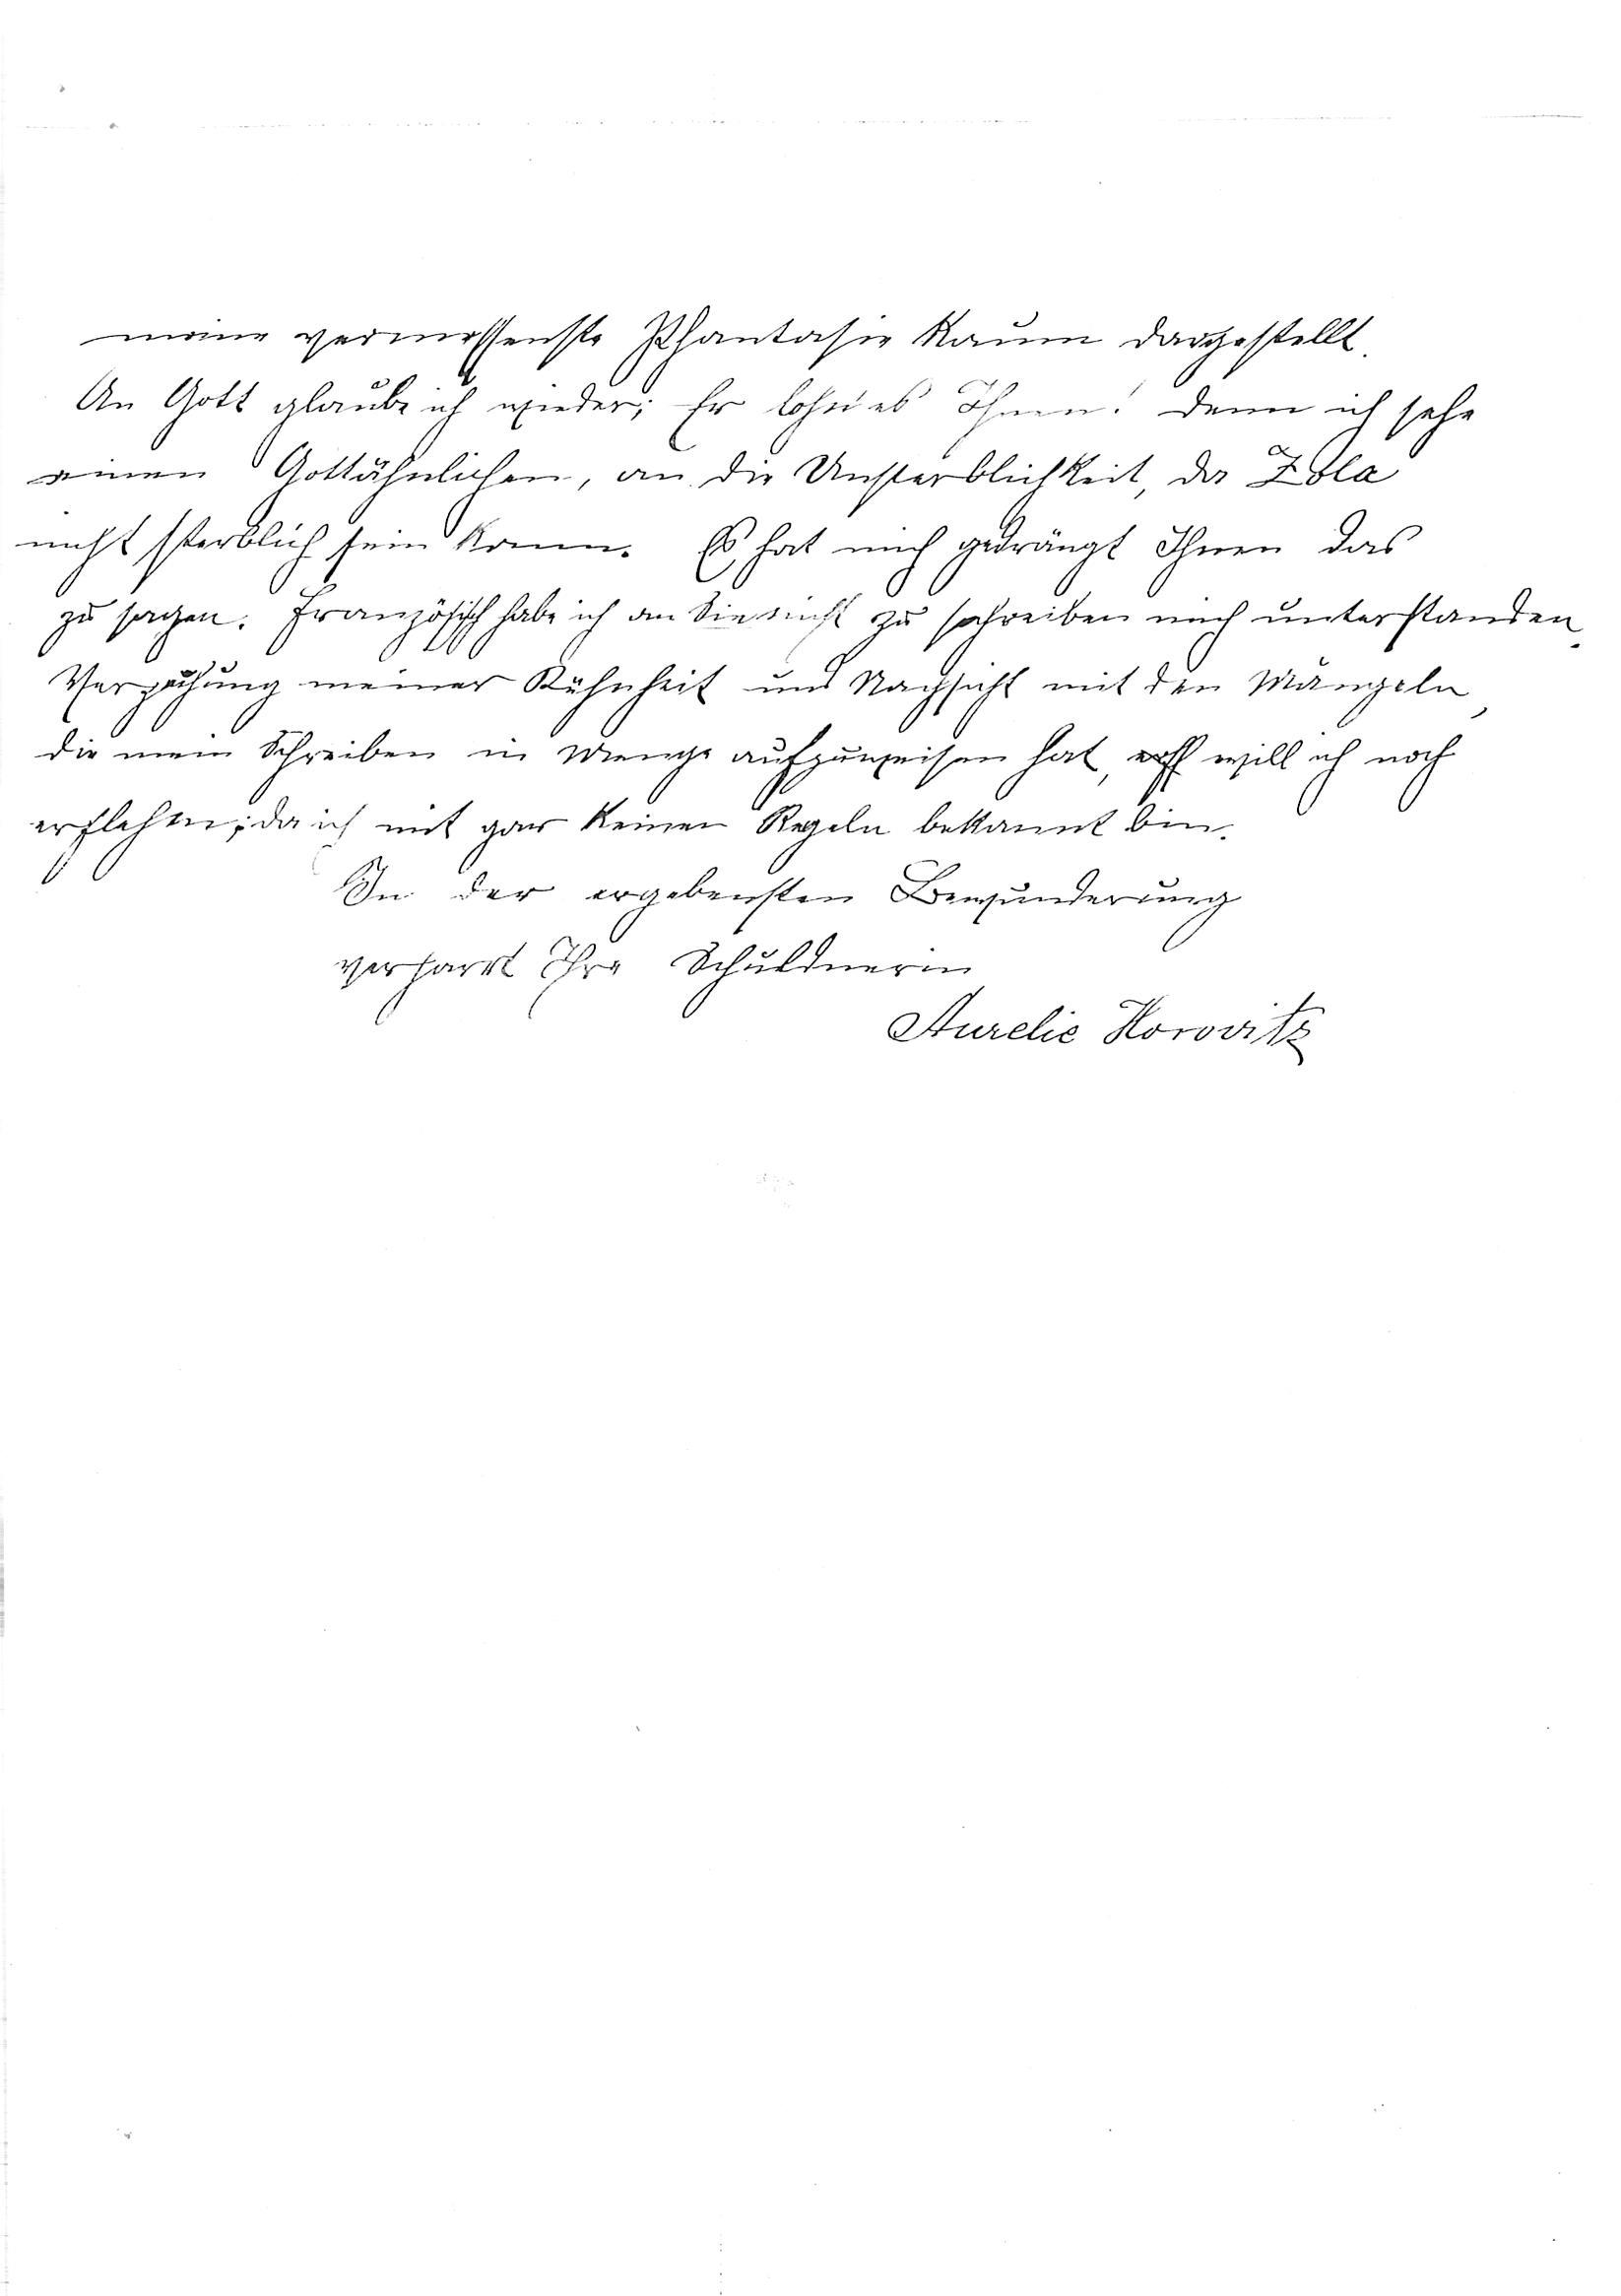 meine vermessenste Phantasie kaum dargestellt.
An Gott glaube ich wieder; Er lohn es Ihnen! denn ich sehe
einen Gottähnlichen, an die Unsterblichkeit, da Zola
nicht sterblich sein kann. Es hat mich gedrängt Ihnen das
zu sagen. Französisch habe ich an Sie nicht zu schreiben mich unterstanden.
Verzeihung meiner Kühnheit und Nachsicht mit den Mängeln,
die mein Schreiben in Menge aufzuweisen hat, will ich noch
erflehen; da ich mit gar keinen Regeln bekannt bin.
In der ergebensten Bewunderung
verharrt Ihre Schuldnerin
Aurelie Horovitz